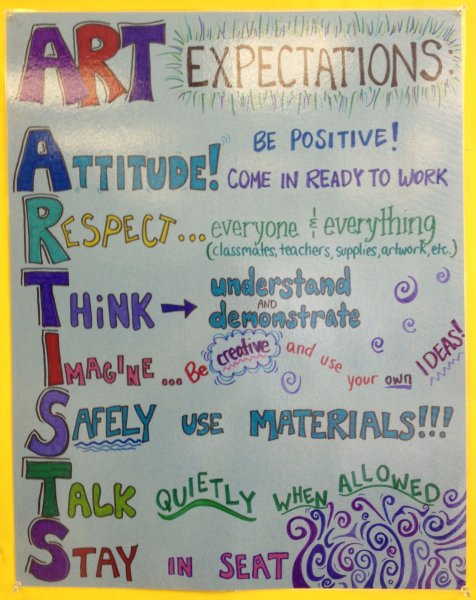 ART EXPECTATIONS:
BE POSITIVE!
ATTITUDE! COME IN READY TO WORK
RESPECT... everyone & everything
(classmates, teachers, supplies, artwork, etc.)
THiNK → understand
AND
demonstrate
IMAGINE... Be creative and use your own IDEAS!
SAFELY USE MATERIALS!!!
TALK QUIETLY WHEN ALLOWED
STAY IN SEAT